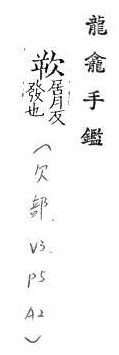 龍龕手鑑
居月反
發也
(欠部. V3 P5 A2)